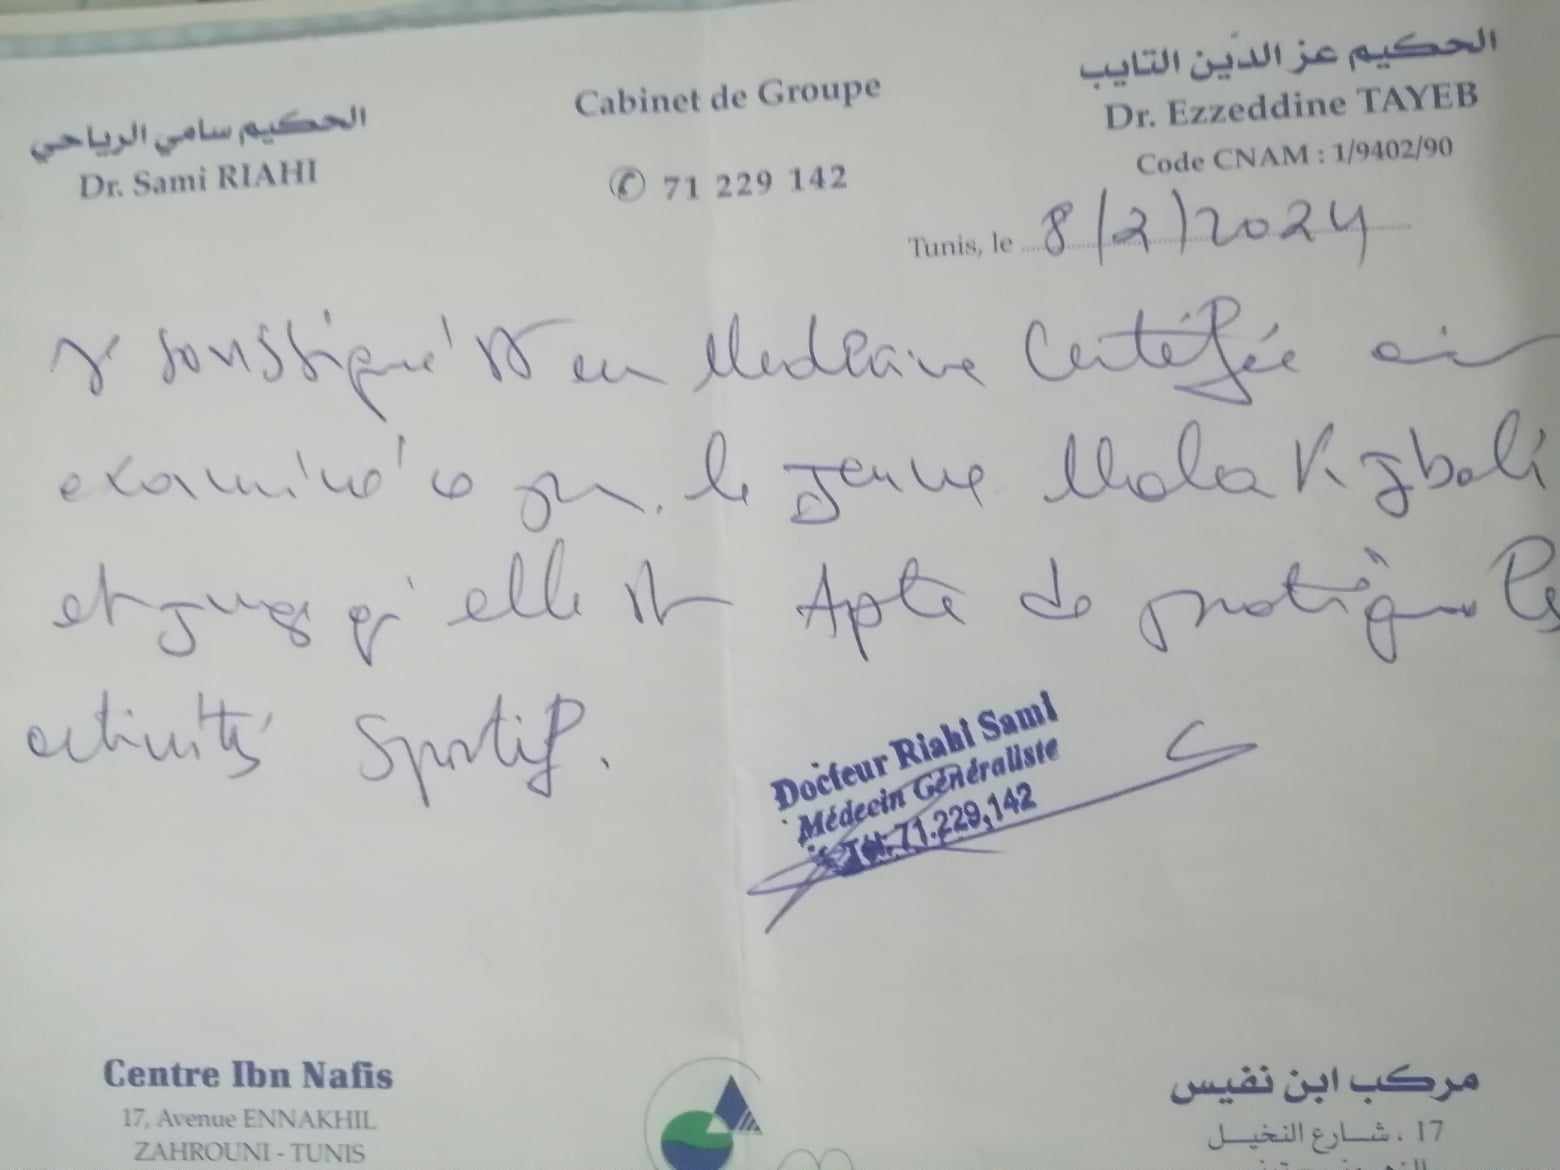 الحكيم سامي الرياحي
Dr. Sami RIAHI
Cabinet de Groupe
✆ 71 229 142
الحكيم عز الدّين التايب
Dr. Ezzeddine TAYEB
Code CNAM : 1/9402/90
Tunis, le 8/2/2024
soussigné Dr en Medecine Certifée
examiné ce jour le jeune Mola K Jbali
et juge q' elle est Apte de pratique les
activités Sportif.
Docteur Riahi Sami
Médecin Généraliste
Tél: 71.229.142
Centre Ibn Nafis
17, Avenue ENNAKHIL
ZAHROUNI - TUNIS
مركب ابن نفيس
17 ، شارع النخيل